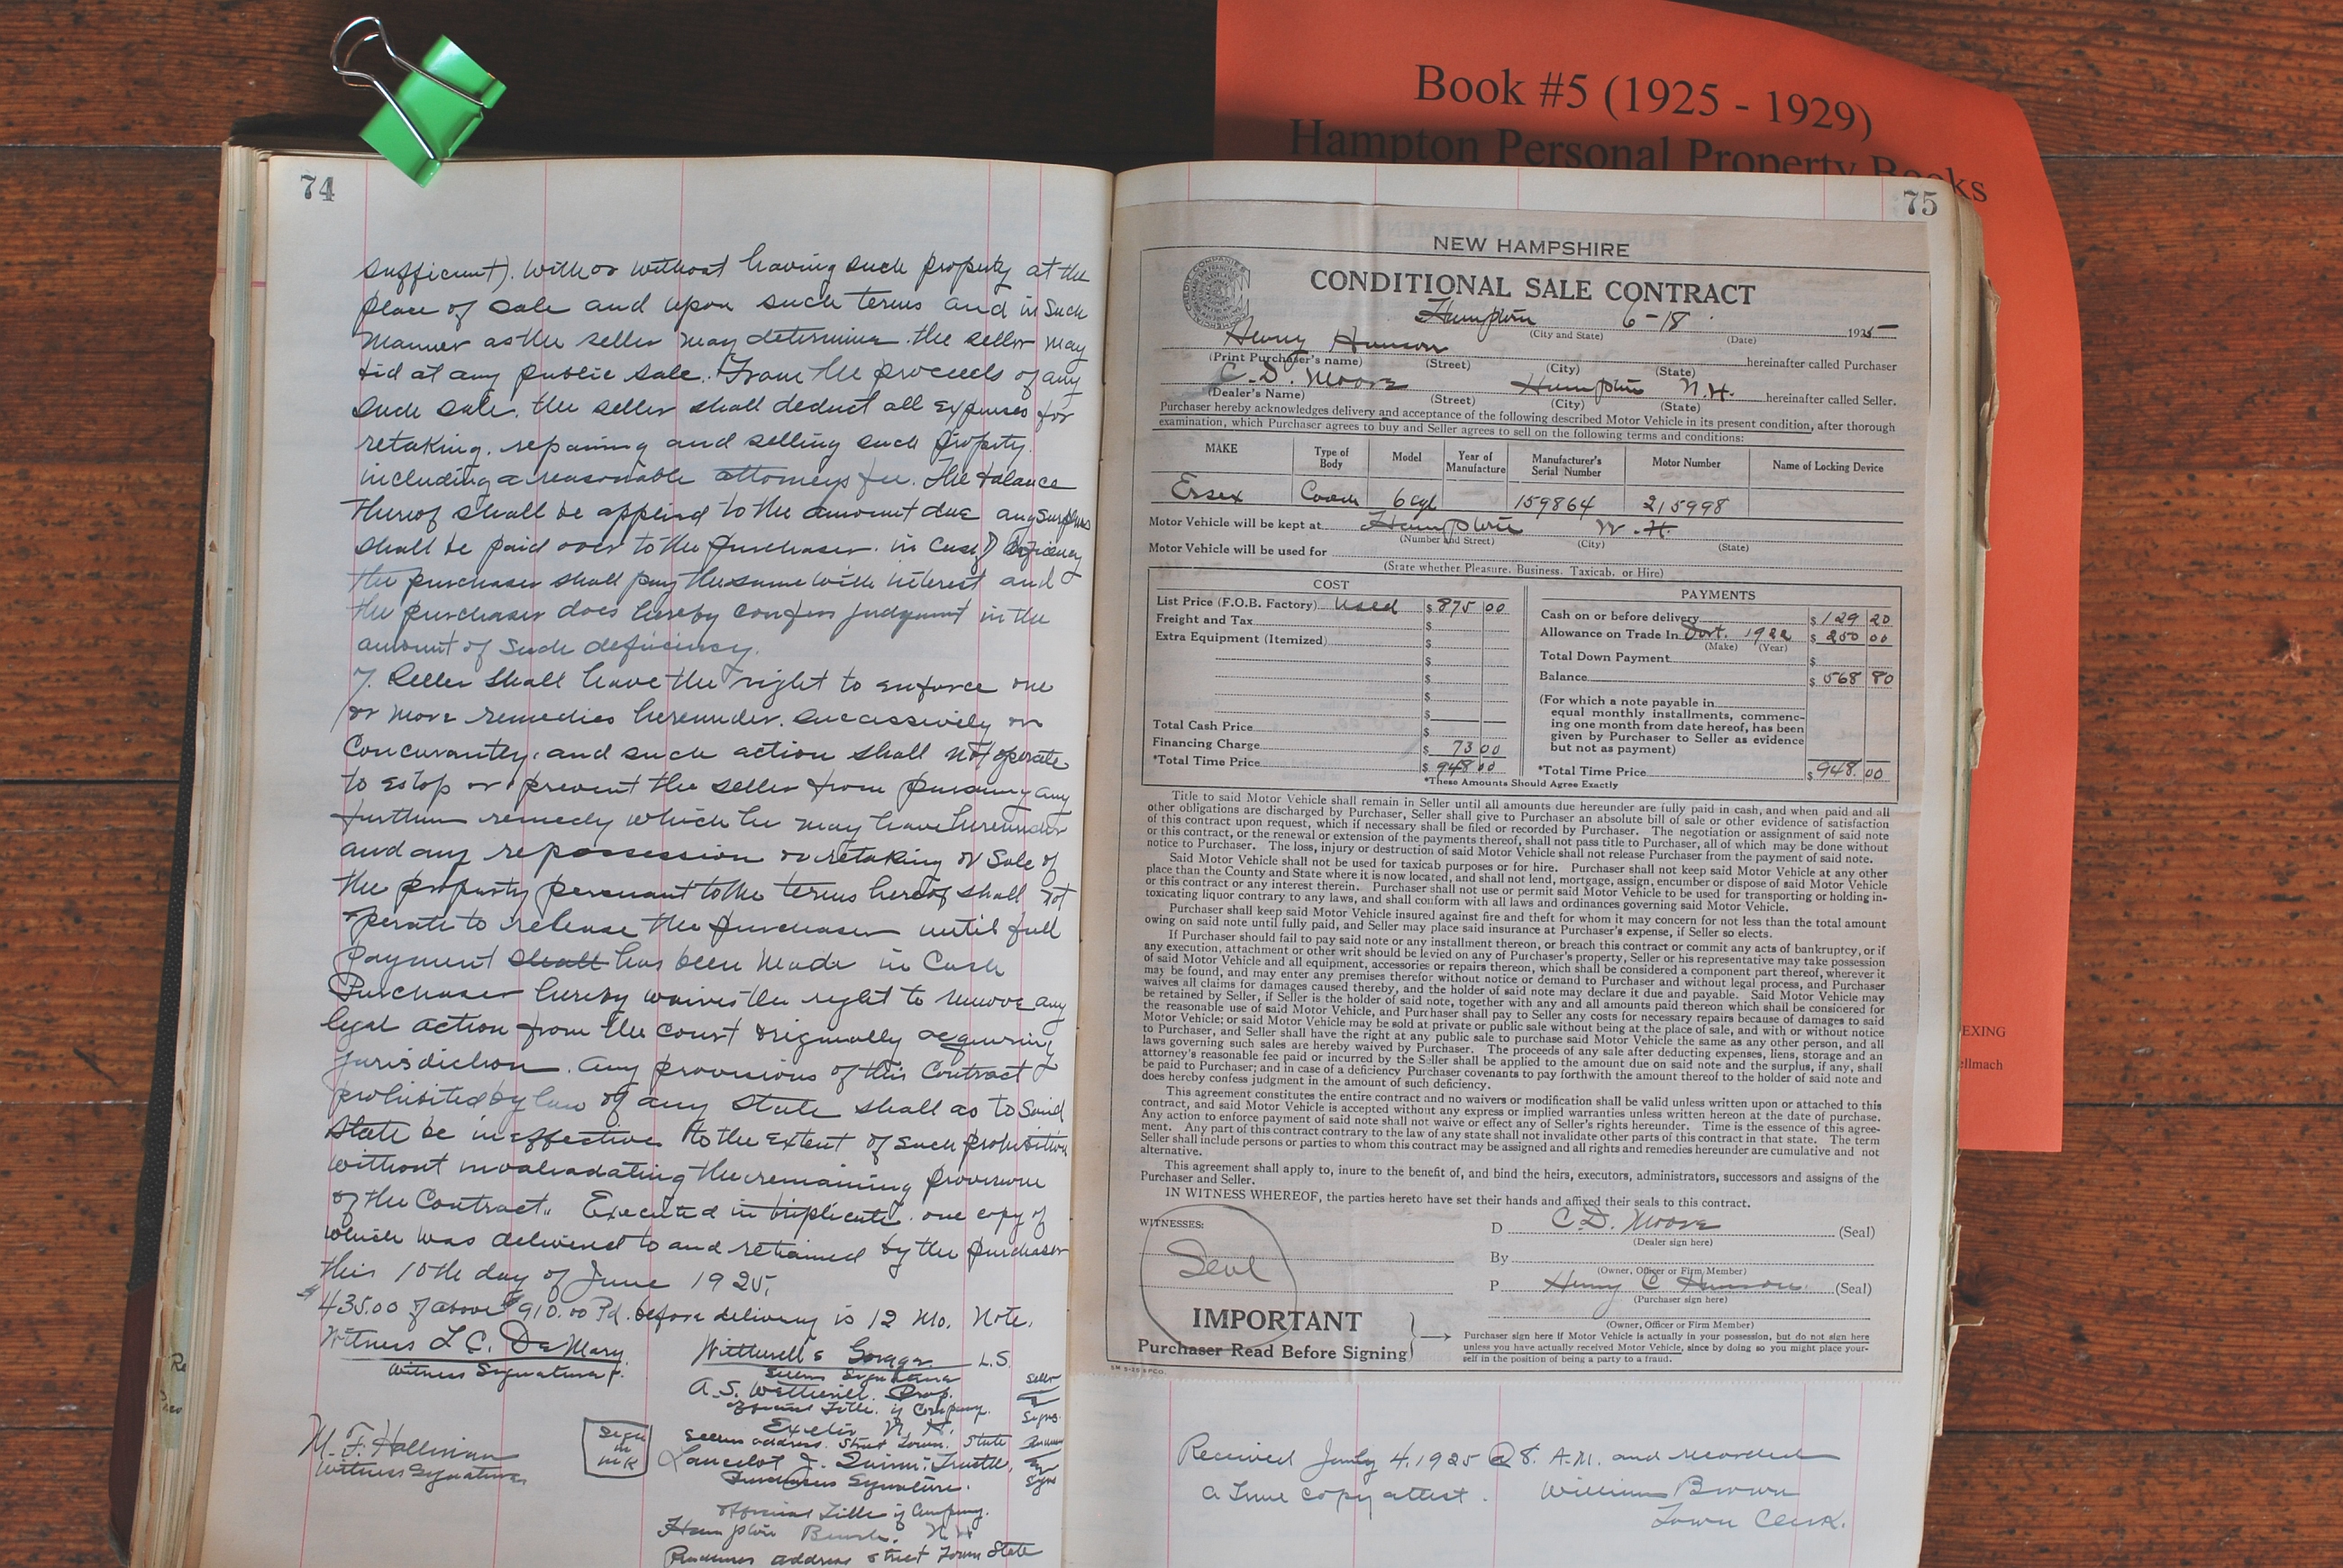 Book #5 (1925 - 1929)
Hampton Personal Property Books
EXING
ellmach
74
sufficient). with or without having such property at the
place of sale and upon such terms and in such
manner as the seller may determine. the seller may
bid at any public sale. From the proceeds of any
such sale. the seller shall deduct all expenses for
retaking, repairing and selling such property.
including a reasonable attorneys fee. The balance
thereof shall be applied to the amount due any surplus
shall be paid over to the purchaser. in case of deficiency
the purchaser shall pay the same with interest and
the purchaser does hereby confess judgment in the
amount of such deficiency.
7. Seller shall have the right to enforce one
or more remedies hereunder. successively or
concurrantly, and such action shall not operate
to estop or prevent the seller from pursuing any
further remedy which he may have hereunder
and any repossession or retaking or sale of
the property persuant to the terms hereof shall not
operate to release the purchaser until full
payment shall has been made in cash
Purchaser hereby waives the right to remove any
legal action from the court originally acquiring
jurisdiction. Any provisions of this contract
prohibited by law of any state shall as to said
state be ineffective to the extent of such prohibition
without invaliadating the remaining provisions
of the Contract. Executed in triplicate. one copy of
which was delivered to and retained by the purchaser
this 10th day of June 1925.
$435.00 of above $910.00 Pd. before delivery is 12 Mo. Note.
Witness L C. DeMary.
Witness Signature.
Witherell & L.S.
Sellers Signature
A. S. Witherill. Prop.
Official Title. if Company.
Exeter N. H.
Sellers address. Street Town. State
M. F. Hallinan
Witness Signature
Sign
in
ink
Lancelot
Purchasers Signature.
Official Title if Company.
Hampton Beach. N H
Purchasers address street Town State
Seller
Sign
75
NEW HAMPSHIRE
CONDITIONAL SALE CONTRACT
Hampton 6-18 1925
(City and State) (Date)
Henry Hanson hereinafter called Purchaser
(Print Purchaser's name) (Street) (City) (State)
C. D. Moore Hampton N.H. hereinafter called Seller.
(Dealer's Name) (Street) (City) (State)
Purchaser hereby acknowledges delivery and acceptance of the following described Motor Vehicle in its present condition, after thorough
examination, which Purchaser agrees to buy and Seller agrees to sell on the following terms and conditions:
MAKE Type of Body Model Year of Manufacture Manufacturer's Serial Number Motor Number Name of Locking Device
Essex Coach 6 cyl 159864 215998
Motor Vehicle will be kept at Hampton N. H.
(Number and Street) (City) (State)
Motor Vehicle will be used for
(State whether Pleasure, Business, Taxicab, or Hire)
COST
List Price (F.O.B. Factory) Used $ 875 00
Freight and Tax $
Extra Equipment (Itemized) $
$
$
$
$
Total Cash Price $
Financing Charge $ 73 00
*Total Time Price $ 948 00
PAYMENTS
Cash on or before delivery $ 129 20
Allowance on Trade In Dort. 1922 $ 250 00
(Make) (Year)
Total Down Payment $
Balance $ 568 80
(For which a note payable in
equal monthly installments, commenc-
ing one month from date hereof, has been
given by Purchaser to Seller as evidence
but not as payment)
*Total Time Price $ 948. 00
*These Amounts Should Agree Exactly
Title to said Motor Vehicle shall remain in Seller until all amounts due hereunder are fully paid in cash, and when paid and all
other obligations are discharged by Purchaser, Seller shall give to Purchaser an absolute bill of sale or other evidence of satisfaction
of this contract upon request, which if necessary shall be filed or recorded by Purchaser. The negotiation or assignment of said note
or this contract, or the renewal or extension of the payments thereof, shall not pass title to Purchaser, all of which may be done without
notice to Purchaser. The loss, injury or destruction of said Motor Vehicle shall not release Purchaser from the payment of said note.
Said Motor Vehicle shall not be used for taxicab purposes or for hire. Purchaser shall not keep said Motor Vehicle at any other
place than the County and State where it is now located, and shall not lend, mortgage, assign, encumber or dispose of said Motor Vehicle
or this contract or any interest therein. Purchaser shall not use or permit said Motor Vehicle to be used for transporting or holding in-
toxicating liquor contrary to any laws, and shall conform with all laws and ordinances governing said Motor Vehicle.
Purchaser shall keep said Motor Vehicle insured against fire and theft for whom it may concern for not less than the total amount
owing on said note until fully paid, and Seller may place said insurance at Purchaser's expense, if Seller so elects.
If Purchaser should fail to pay said note or any installment thereon, or breach this contract or commit any acts of bankruptcy, or if
any execution, attachment or other writ should be levied on any of Purchaser's property, Seller or his representative may take possession
of said Motor Vehicle and all equipment, accessories or repairs thereon, which shall be considered a component part thereof, wherever it
may be found, and may enter any premises therefor without notice or demand to Purchaser and without legal process, and Purchaser
waives all claims for damages caused thereby, and the holder of said note may declare it due and payable. Said Motor Vehicle may
be retained by Seller, if Seller is the holder of said note, together with any and all amounts paid thereon which shall be considered for
the reasonable use of said Motor Vehicle, and Purchaser shall pay to Seller any costs for necessary repairs because of damages to said
Motor Vehicle; or said Motor Vehicle may be sold at private or public sale without being at the place of sale, and with or without notice
to Purchaser, and Seller shall have the right at any public sale to purchase said Motor Vehicle the same as any other person, and all
laws governing such sales are hereby waived by Purchaser. The proceeds of any sale after deducting expenses, liens, storage and an
attorney's reasonable fee paid or incurred by the Seller shall be applied to the amount due on said note and the surplus, if any, shall
be paid to Purchaser; and in case of a deficiency Purchaser covenants to pay forthwith the amount thereof to the holder of said note and
does hereby confess judgment in the amount of such deficiency.
This agreement constitutes the entire contract and no waivers or modification shall be valid unless written upon or attached to this
contract, and said Motor Vehicle is accepted without any express or implied warranties unless written hereon at the date of purchase.
Any action to enforce payment of said note shall not waive or effect any of Seller's rights hereunder. Time is the essence of this agree-
ment. Any part of this contract contrary to the law of any state shall not invalidate other parts of this contract in that state. The term
Seller shall include persons or parties to whom this contract may be assigned and all rights and remedies hereunder are cumulative and not
alternative.
This agreement shall apply to, inure to the benefit of, and bind the heirs, executors, administrators, successors and assigns of the
Purchaser and Seller.
IN WITNESS WHEREOF, the parties hereto have set their hands and affixed their seals to this contract.
WITNESSES:
Seal
D C. D. Moore (Seal)
(Dealer sign here)
By
(Owner, Officer or Firm Member)
P Henry C Hanson (Seal)
(Purchaser sign here)
(Owner, Officer or Firm Member)
IMPORTANT
Purchaser Read Before Signing
Purchaser sign here if Motor Vehicle is actually in your possession, but do not sign here
unless you have actually received Motor Vehicle, since by doing so you might place your-
self in the position of being a party to a fraud.
Received July 4. 1925 @ 8. A.M. and recorded
a true copy attest. William Brown
Town Clerk.